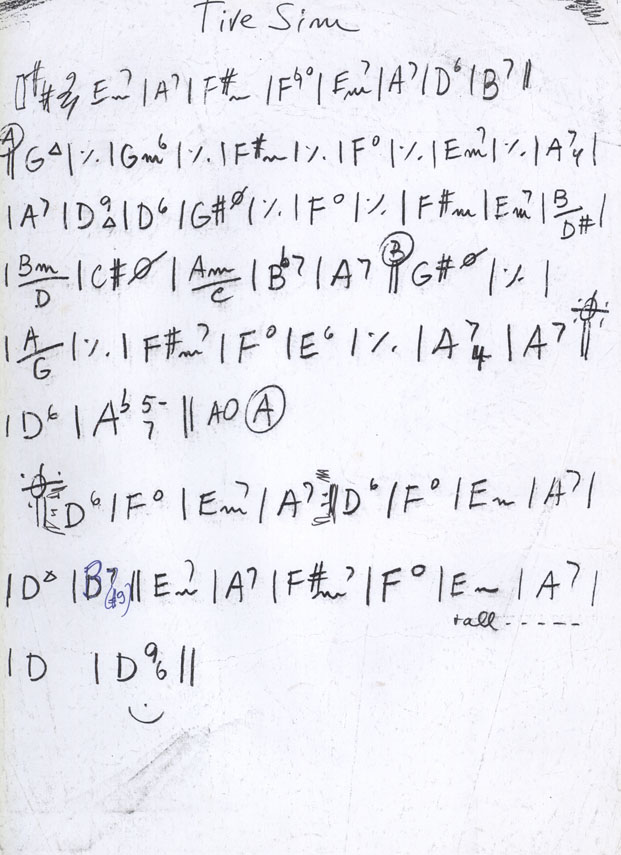 Tive Sim
## 2/4 Em7 | A7 | F#m | F♮° | Em7 | A7 | D6 | B7 ||
(A) || GΔ | ٪ | Gm6 | ٪ | F#m | ٪ | F° | ٪ | Em7 | ٪ | A7/4 |
| A7 | D9Δ | D6 | G#ø | ٪ | F° | ٪ | F#m | Em7 | B/D# |
| Bm/D | C#ø | Am/C | Bb7 | A7 (B) || G#ø | ٪ |
| A/G | ٪ | F#m7 | F° | E6 | ٪ | A7/4 | A7 𝄌 ||
| D6 | Ab 5-/7 || AO (A)
𝄌 ||: D6 | F° | Em7 | A7 :|| D6 | F° | Em | A7 |
| DΔ | B7(#9) || Em7 | A7 | F#m7 | F° | Em | A7 |
rall - - - - -
| D | D9/6 ||